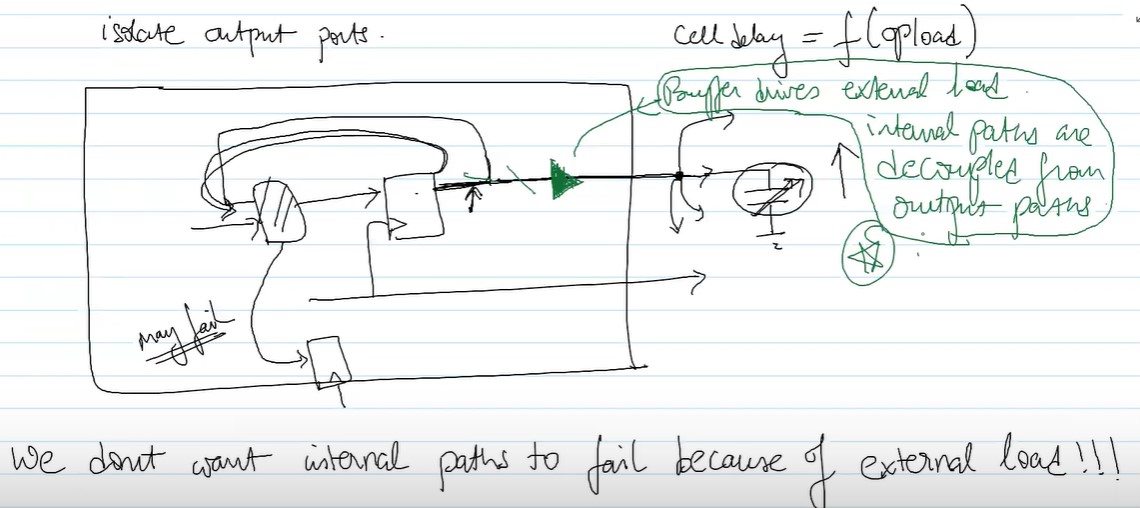 isolate output ports.
cell delay = f(opload)
Buffer drives external load.
internal paths are
decouples from
output paths
may fail
We dont want internal paths to fail because of external load!!!